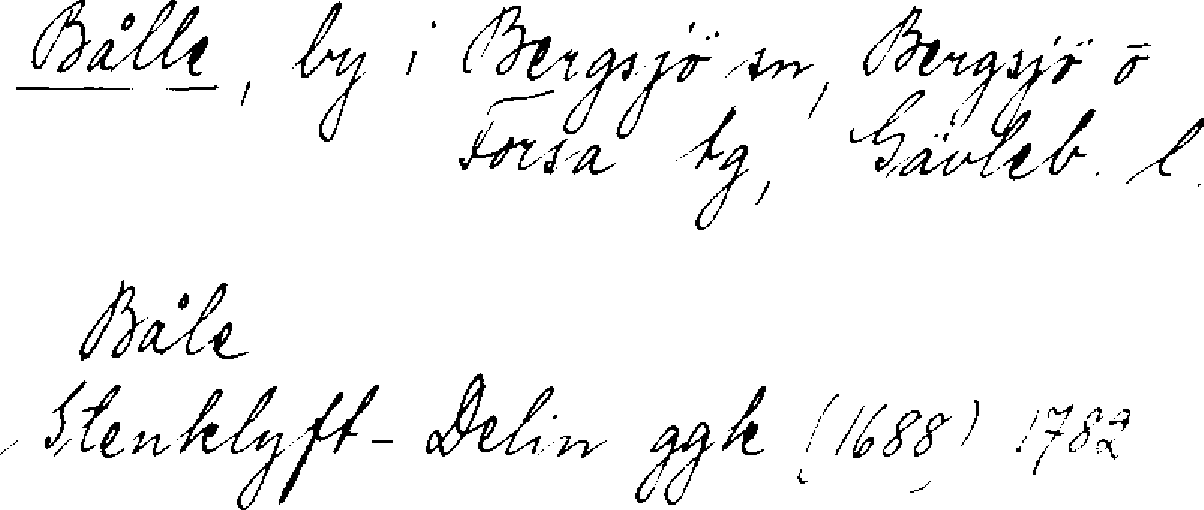 Bålle, by i Bergsjö sn, Bergsjö o
Forsa tg, Gävleb. l.
Båle
Stenklyft-Delin ggk (1688) 1782